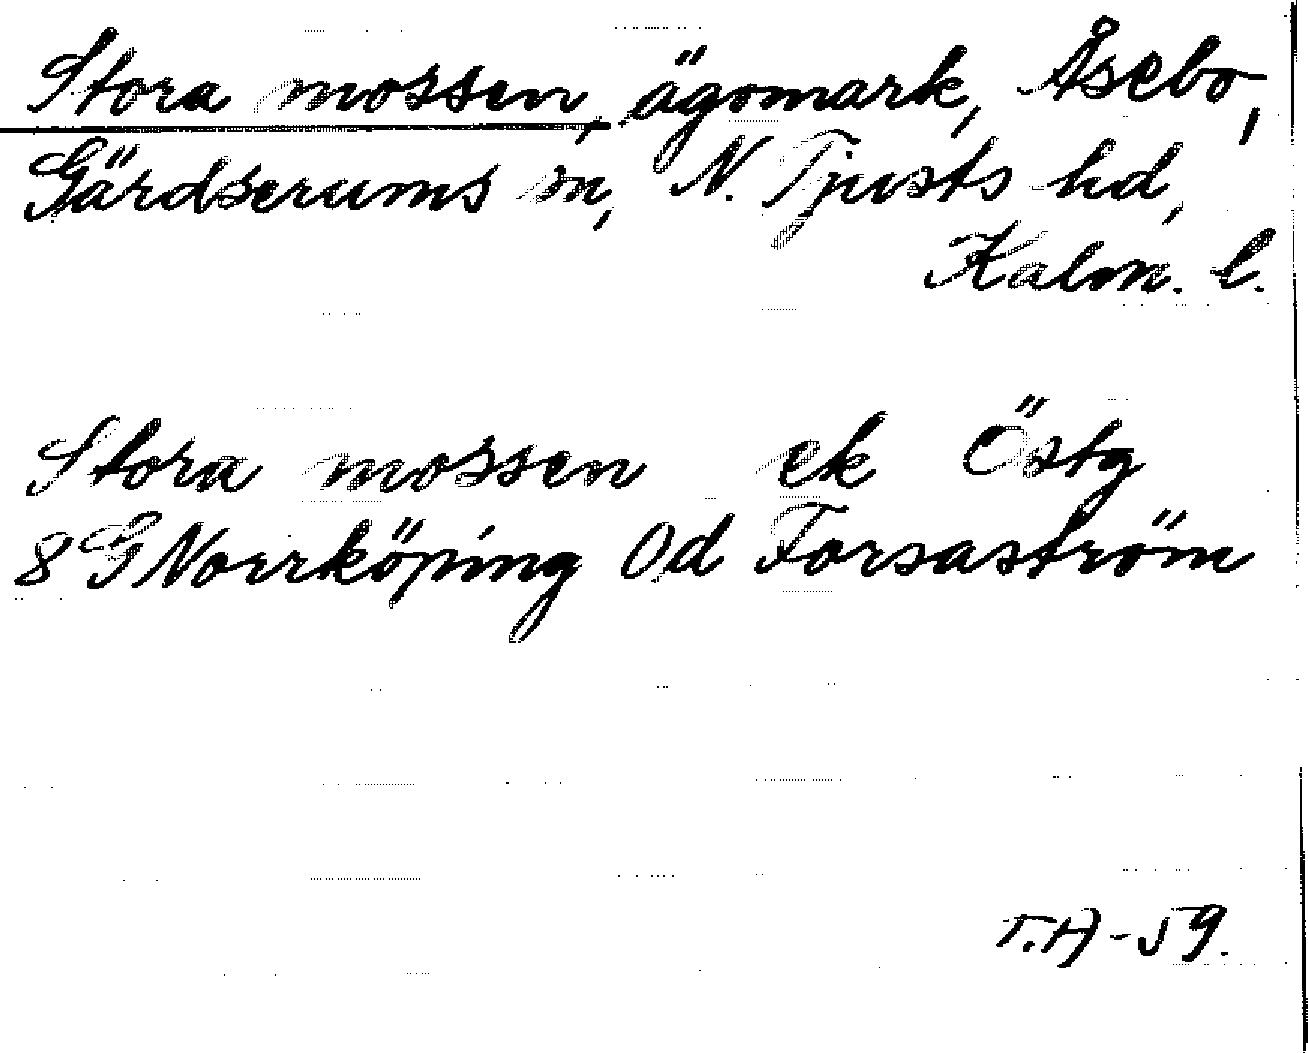 Stora mossen, ägomark, Åsebo,
Gärdserums sn, N. Tjusts hd,
Kalm. l.
Stora mossen ek Östg
8 G Norrköping 0d Forsaström
T.A-59.